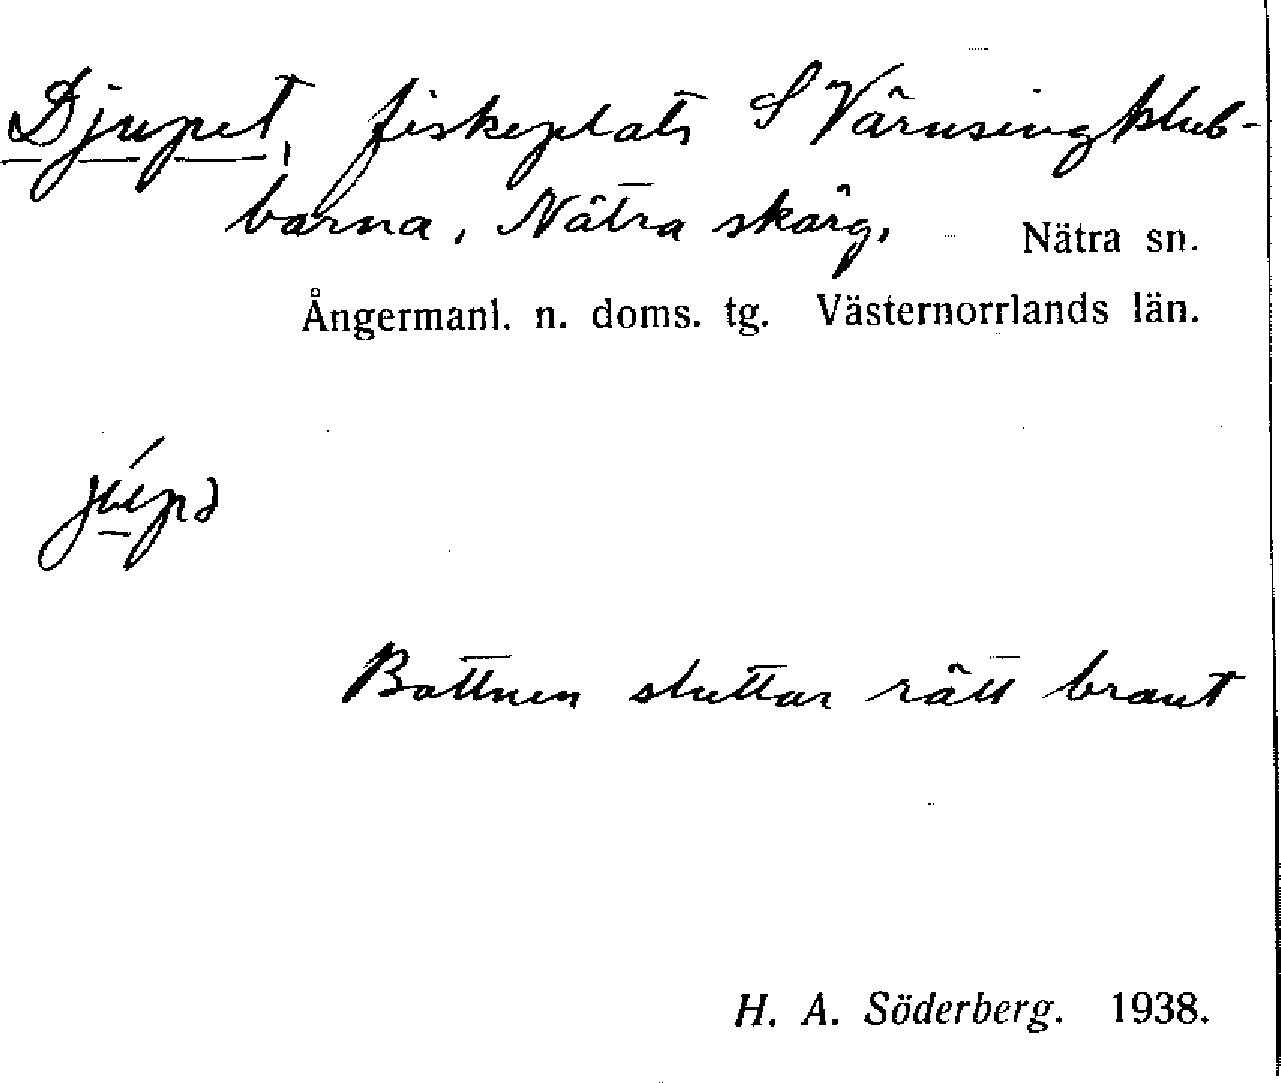 Djupet, fiskeplats S Värnsingklub-
barna, Nätra skärg. Nätra sn.
Ångermanl. n. doms. tg. Västernorrlands län.
Bottnen sluttar rätt brant
H. A. Söderberg. 1938.